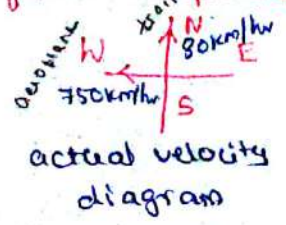 N
80km/hr
W
E
aeroplane
750km/hr
S
actual velocity
diagram